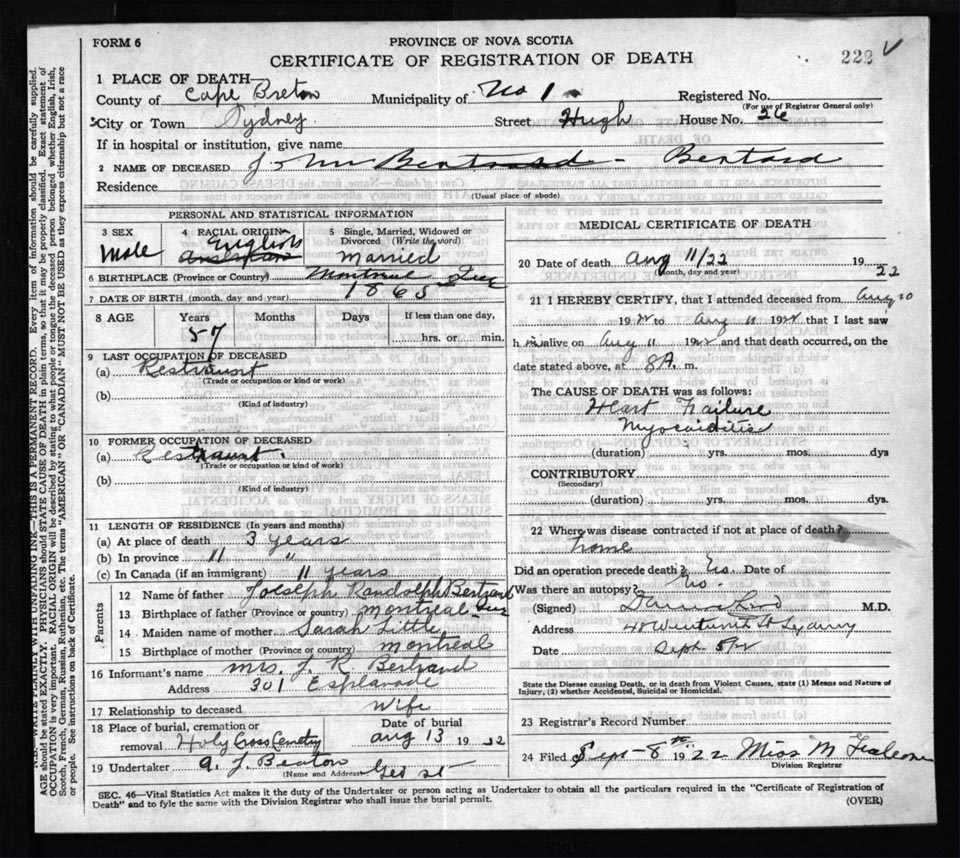 FORM 6
PROVINCE OF NOVA SCOTIA
CERTIFICATE OF REGISTRATION OF DEATH
222 ✓
1 PLACE OF DEATH
County of Cape Breton Municipality of No 1 Registered No.
(For use of Registrar General only)
City or Town Sydney Street Hugh House No. 26
If in hospital or institution, give name
2 NAME OF DECEASED John Bertrand - Bertard
Residence
(Usual place of abode)
PERSONAL AND STATISTICAL INFORMATION
3 SEX Male
4 RACIAL ORIGIN English American
5 Single, Married, Widowed or Divorced (Write the word) Married
6 BIRTHPLACE (Province or Country) Montreal Que
7 DATE OF BIRTH (month, day and year) 1865
8 AGE Years 57 Months Days If less than one day, hrs. or min.
9 LAST OCCUPATION OF DECEASED
(a) Restraunt
(Trade or occupation or kind of work)
(b)
(Kind of industry)
10 FORMER OCCUPATION OF DECEASED
(a) Restraunt.
(Trade or occupation or kind of work)
(b)
(Kind of industry)
11 LENGTH OF RESIDENCE (In years and months)
(a) At place of death 3 years
(b) In province 11 "
(c) In Canada (if an immigrant) 11 years
Parents
12 Name of father Joelseph Randolph Bertrand
13 Birthplace of father (Province or country) Montreal Que
14 Maiden name of mother Sarah Little
15 Birthplace of mother (Province or country) Montreal
16 Informant's name Mrs J. R. Bertrand
Address 301 Esplanade
17 Relationship to deceased Wife
18 Place of burial, cremation or removal Holy Cross Cemetry Date of burial Aug 13 1922
19 Undertaker A. J. Beaton Geo St
(Name and Address)
MEDICAL CERTIFICATE OF DEATH
20 Date of death Aug 11/22 1922
(Month, day and year)
21 I HEREBY CERTIFY, that I attended deceased from Aug 10
1922 to Aug 11 1922 that I last saw
h im alive on Aug 11 1922 and that death occurred, on the
date stated above, at 8A. m.
The CAUSE OF DEATH was as follows:
Heart Failure
Myocarditis
(duration) yrs. mos. dys
CONTRIBUTORY
(Secondary)
(duration) yrs. mos. dys.
22 Where was disease contracted if not at place of death?
home
Did an operation precede death? No. Date of
Was there an autopsy? No.
(Signed) M.D.
Address 40 Wentworth St Sydney
Date Sept 5/22
State the Disease causing Death, or in death from Violent Causes, state (1) Means and Nature of Injury, (2) whether Accidental, Suicidal or Homicidal.
23 Registrar's Record Number
24 Filed Sept - 8th 1922 Miss M
Division Registrar
SEC. 46—Vital Statistics Act makes it the duty of the Undertaker or person acting as Undertaker to obtain all the particulars required in the "Certificate of Registration of
Death" and to fyle the same with the Division Registrar who shall issue the burial permit.
(OVER)
N.B.—WRITE PLAINLY WITH UNFADING INK—THIS IS A PERMANENT RECORD. Every item of information should be carefully supplied.
AGE should be stated EXACTLY. PHYSICIANS should STATE CAUSE OF DEATH in plain terms, so that it may be properly classified. Exact statement of
OCCUPATION is very important. RACIAL ORIGIN will be described by stating to what people or tongue the deceased person belonged whether English, Irish,
Scotch, French, German, Russian, Ruthenian, etc. The terms "AMERICAN" OR "CANADIAN" MUST NOT BE USED as they express citizenship but not a race
or people. See instructions on back of Certificate.